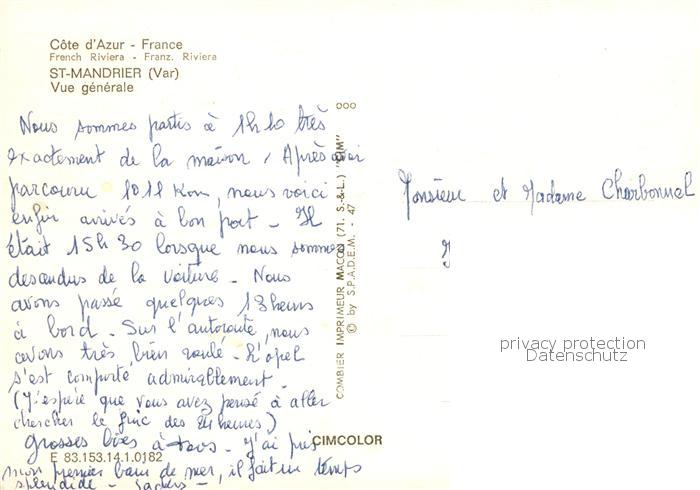 Côte d'Azur - France
French Riviera - Franz. Riviera
ST-MANDRIER (Var)
Vue générale
Nous sommes partis à 1h10 très
exactement de la maison, Après avoir
parcouru 1011 Km, nous voici
enfin arrivés à bon port - Il
était 15h30 lorsque nous sommes
descendus de la voiture - Nous
avons passé quelques 13 heures
à bord - Sur l'autoroute, nous
avons très bien roulé - L'opel
s'est comporté admirablement -
(J'espère que vous avez pensé à aller
chercher le fric des 24 heures)
Grosses bises à tous - J'ai pris
mon premier bain de mer, il fait un temps
splendide -
E 83.153.14.1.0182
COMBIER IMPRIMEUR MACON (71. S.-&-L.) "CIM"
© by S.P.A.D.E.M. - 47
CIMCOLOR
Monsieur et Madame Charbonnel
privacy protection
Datenschutz